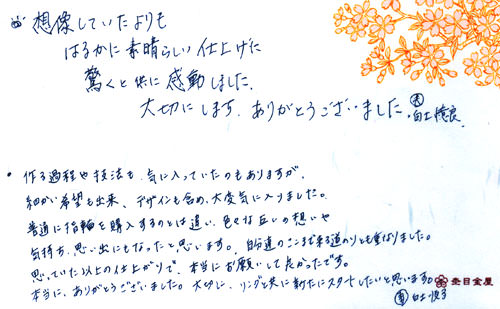 想像していたよりも
はるかに素晴らしい仕上げに
驚くと供に感動しました。
大切にします。ありがとうございました。
・作る過程や技法も、気に入っていたのもありますが、
細かい希望も出来、デザインも含め、大変気に入りました。
普通に指輪を購入するのとは違い、色々な互いの想いや
気持ち、思い出にもなったと思います。自分達のここまで来る道のりとも重なりました。
思っていた以上の仕上がりで、本当にお願いして良かったです。
本当に、ありがとうございました。大切に、リングと共に新たにスタートしたいと思います。
杢目金屋